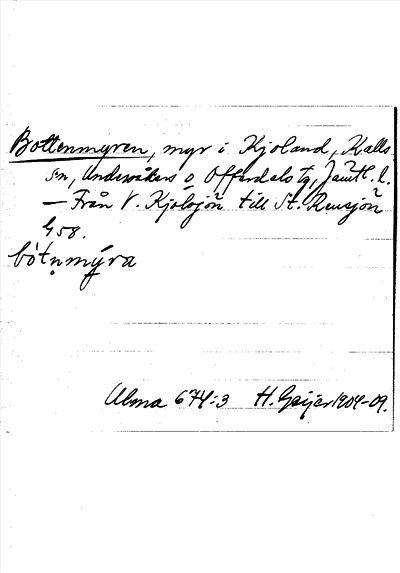 Bottenmyren, myr i Kjoland, Kalls
sn, Undersåkers o Offerdals tg, Jämtl. l.
— Från V. Kjolsjön till St. Rensjön
G 58.
bòtṇmýra
Ulma 674:3 H. Geijer 1904-09.